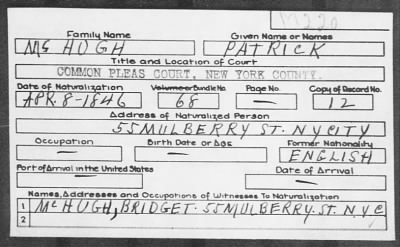 M220
Family Name Given Name or Names
Mc HUGH PATRICK
Title and Location of Court
COMMON PLEAS COURT, NEW YORK COUNTY.
Date of Naturalization Volume or Bundle No. Page No. Copy of Record No.
APR. 8-1846 68 — 12
Address of Naturalized Person
55 MULBERRY ST. N Y CITY
Occupation Birth Date or Age Former Nationality
— — ENGLISH
Port of Arrival in the United States Date of Arrival
— —
Names, Addresses and Occupations of Witnesses To Naturalization
1 Mc HUGH, BRIDGET. 55 MULBERRY. ST. N Y C
2